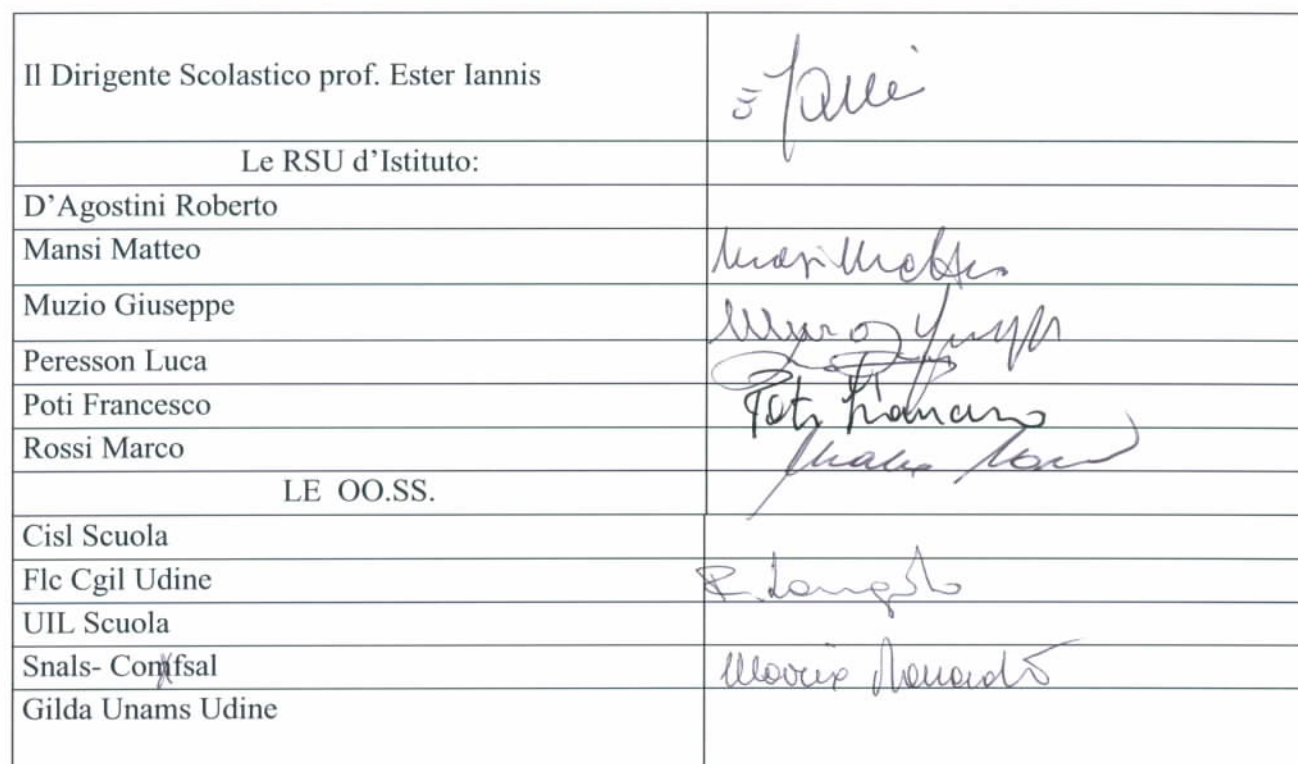 Il Dirigente Scolastico prof. Ester Iannis
Le RSU d'Istituto:
D'Agostini Roberto
Mansi Matteo
Muzio Giuseppe
Peresson Luca
Poti Francesco
Poti Francesco
Rossi Marco
LE OO.SS.
Cisl Scuola
Flc Cgil Udine
UIL Scuola
Snals- Comfsal
Gilda Unams Udine